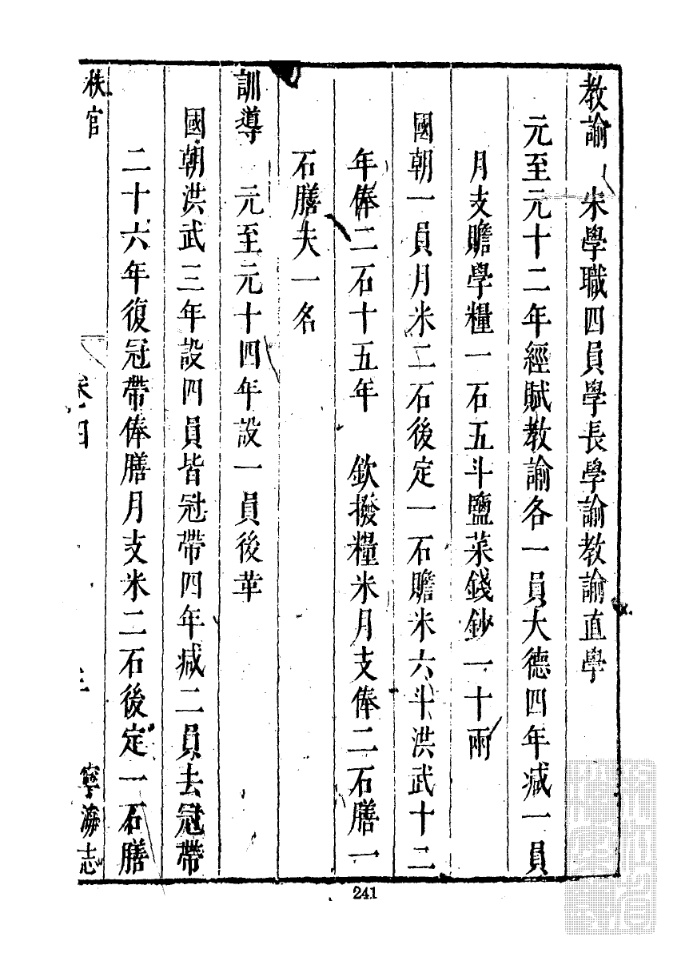 教諭 宋學職四員學長學諭教諭直學
元至元十二年經賦教諭各一員大德四年减一員
月支贍學糧一石五斗鹽菜錢鈔一十兩
國朝一員月米二石後定一石贍米六斗洪武十二
年俸二石十五年 欽撥糧米月支俸二石膳一
石膳夫一名
訓導 元至元十四年設一員後革
國朝洪武三年設四員皆冠帶四年减二員去冠帶
二十六年復冠帶俸膳月支米二石後定一石膳
秩官 卷四 寧海志
241